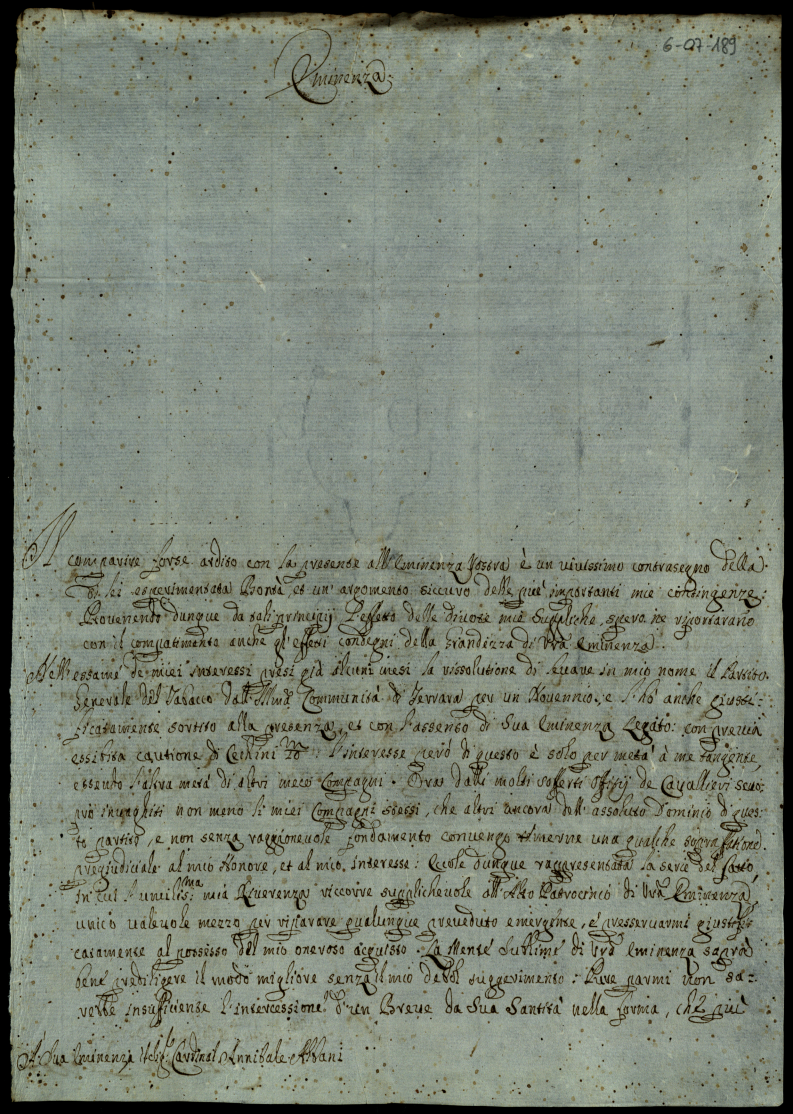 6-07-189
Eminenza.
Il
comparire forse ardito con la presente all'Eminenza Vostra è un vivissimo contrasegno della
di lei esperimentata Bontà, et un' argomento sicuro delle più importanti mie contingenze:
Provenendo dunque da tali principij l'effetto delle divote mie Suppliche, spero ne riportarano
con il compatimento anche gl'effetti condegni della grandezza di Vrã Eminenza.
Nell'essame de miei interessi presi già alcuni mesi la rissolutione di levare in mio nome il Partito
Generale del Tabacco dall'Illmã Communità di Ferrara per un Novennio, e l'hò anche giusti-
ficatamente sortito alla presenza, et con l'assenso di Sua Eminenza Legato: con previa
essibita cautione di Cechini l'interesse però di questo è solo per metà à me tangente,
essendo l'altra metà di altri meco Compagni. Ora dalli molti sofferti offitij de Cavallieri sono
invaghiti non meno li miei Compagni stessi, che altri ancora dell'assoluto Dominio di ques-
to partito, e non senza raggionevole fondamento convengo temerne una qualche sopra fatione
pregiudiciale al mio Honore, et al mio Interesse: Eccole dunque rappresentata la serie del fatto,
in cui l'umiliss:ma mia Riverenza ricorre supplichevole all'Alto Patrocinio di Vrã Eminenza,
unico valevole mezzo per riparare qualunque preveduto emergente, e presservarmi giustifi-
catamente al possesso del mio oneroso acquisto. La Mente Sublime di Vrã Eminenza saprà
bene prediligere il modo migliore senza il mio debol suggerimento: Pure parmi non sa-
rebbe insufficiente l'intercessione d'un Breve da Sua Santità nella forma, che più
A Sua Eminenza Cardinal Annibale Albani